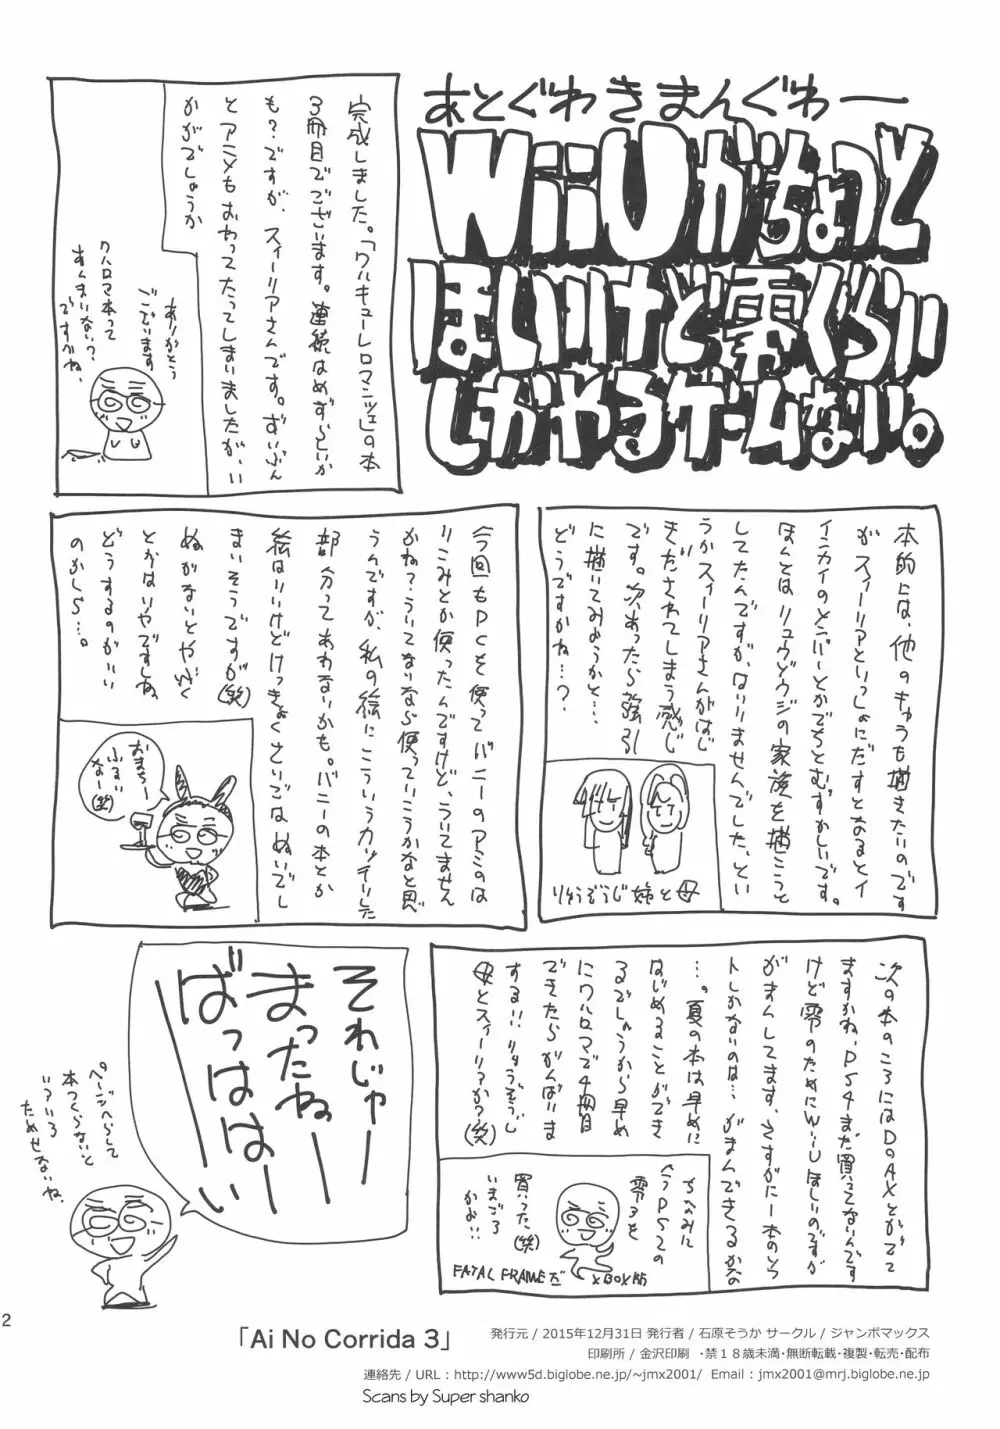 あとぐわきまんぐわー
WiiUがちょっと
ほしいけど零ぐらい
しかやるゲームない。
完成しました。「ワルキューレロマンツェ」の本
3冊目でございます。連続はめずらしいか
も?ですが、スィーリアさんです。ずいぶん
とアニメもおわってたってしまいましたが、い
かがでしょうか
ありがとう
ございます
ワルロマ本って
すんまいない?
ですかね、
本的には、他のキャラも描きたいのです
がスィーリアといっしょにだすとなるとイ
イニカイのとバーとかでちとむずかしいです。
ほんとはリュウゾウジの家族を描こうと
してたんですが、はいりませんでした、とい
うかスィーリアさんがはじ
きだされてしまう感じ
です。次、あったら強引
に描いてみようかと…
どうですかね…?
りゅうぞうじ姉と母
今回もPCを使ってバニーのアミのは
りこみとか使ったんですけど、ういてません
かね?ういてないなら使っていこうかなと思
うんですが、私の絵にこういうカッチリした
部分ってあわないかも。バニーの本とか
絵はいいけどけっきょくさいごはぬいでし
まいそうですが(笑)
ぬがないとやぶく
とかはいやですしね、
どうするのがいい
のかしら…。
おまえー
ふるい
なー(笑)
次の本のころにはDOAXとかでて
ますかね、PS4まだ買ってないんです
けど零のためにWiiUほしいのですが
がまんしてます、さすがに一本のソフ
トしかないのは…がまんできるかな
…。夏の本は早めに
はじめることができ
るでしょうから早め
にワルロマで4冊目
できたらがんばりま
する!!りゅうぞうじ
母とスィーリアか?(笑)
ちなみに
今PS2の
零3を
買った、(笑)
いまごろ
かよ!!
FATAL FRAMEだ XBOX版
それじゃー
まったねー
ばっははーい
ページへらして
本つくらないと
いろいろ
ためせないね、
2
「Ai No Corrida 3」
発行元 / 2015年12月31日 発行者 / 石原そうか サークル / ジャンボマックス
印刷所 / 金沢印刷 ・禁18歳未満・無断転載・複製・転売・配布
連絡先 / URL : http://www5d.biglobe.ne.jp/~jmx2001/ Email : jmx2001@mrj.biglobe.ne.jp
Scans by Super shanko